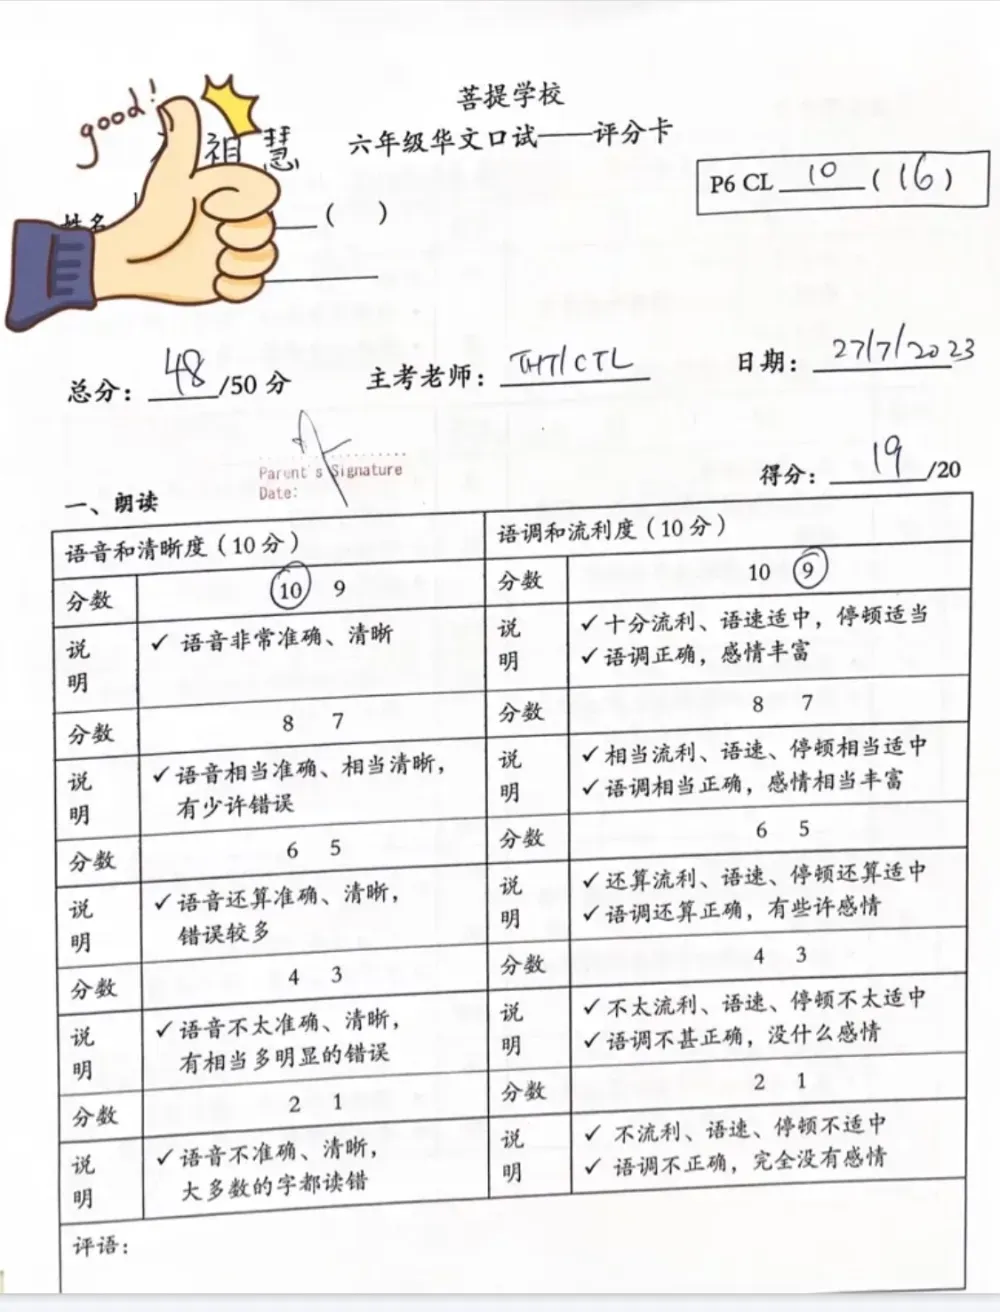 good!
菩提学校
六年级华文口试——评分卡
祖慧
P6 CL 10 (16)
姓名 ( )
总分: 48/50 分 主考老师: THT/CTL 日期: 27/7/2023
Parent's Signature
Date:
得分: 19/20
一、朗读
语音和清晰度(10分) 语调和流利度(10分)
分数 10 9 分数 10 9
说明 ✓ 语音非常准确、清晰 说明 ✓ 十分流利、语速适中，停顿适当
✓ 语调正确，感情丰富
分数 8 7 分数 8 7
说明 ✓ 语音相当准确、相当清晰， 说明 ✓ 相当流利、语速、停顿相当适中
有少许错误 ✓ 语调相当正确，感情相当丰富
分数 6 5 分数 6 5
说明 ✓ 语音还算准确、清晰， 说明 ✓ 还算流利、语速、停顿还算适中
错误较多 ✓ 语调还算正确，有些许感情
分数 4 3 分数 4 3
说明 ✓ 语音不太准确、清晰， 说明 ✓ 不太流利、语速、停顿不太适中
有相当多明显的错误 ✓ 语调不甚正确，没什么感情
分数 2 1 分数 2 1
说明 ✓ 语音不准确、清晰， 说明 ✓ 不流利、语速、停顿不适中
大多数的字都读错 ✓ 语调不正确，完全没有感情
评语: